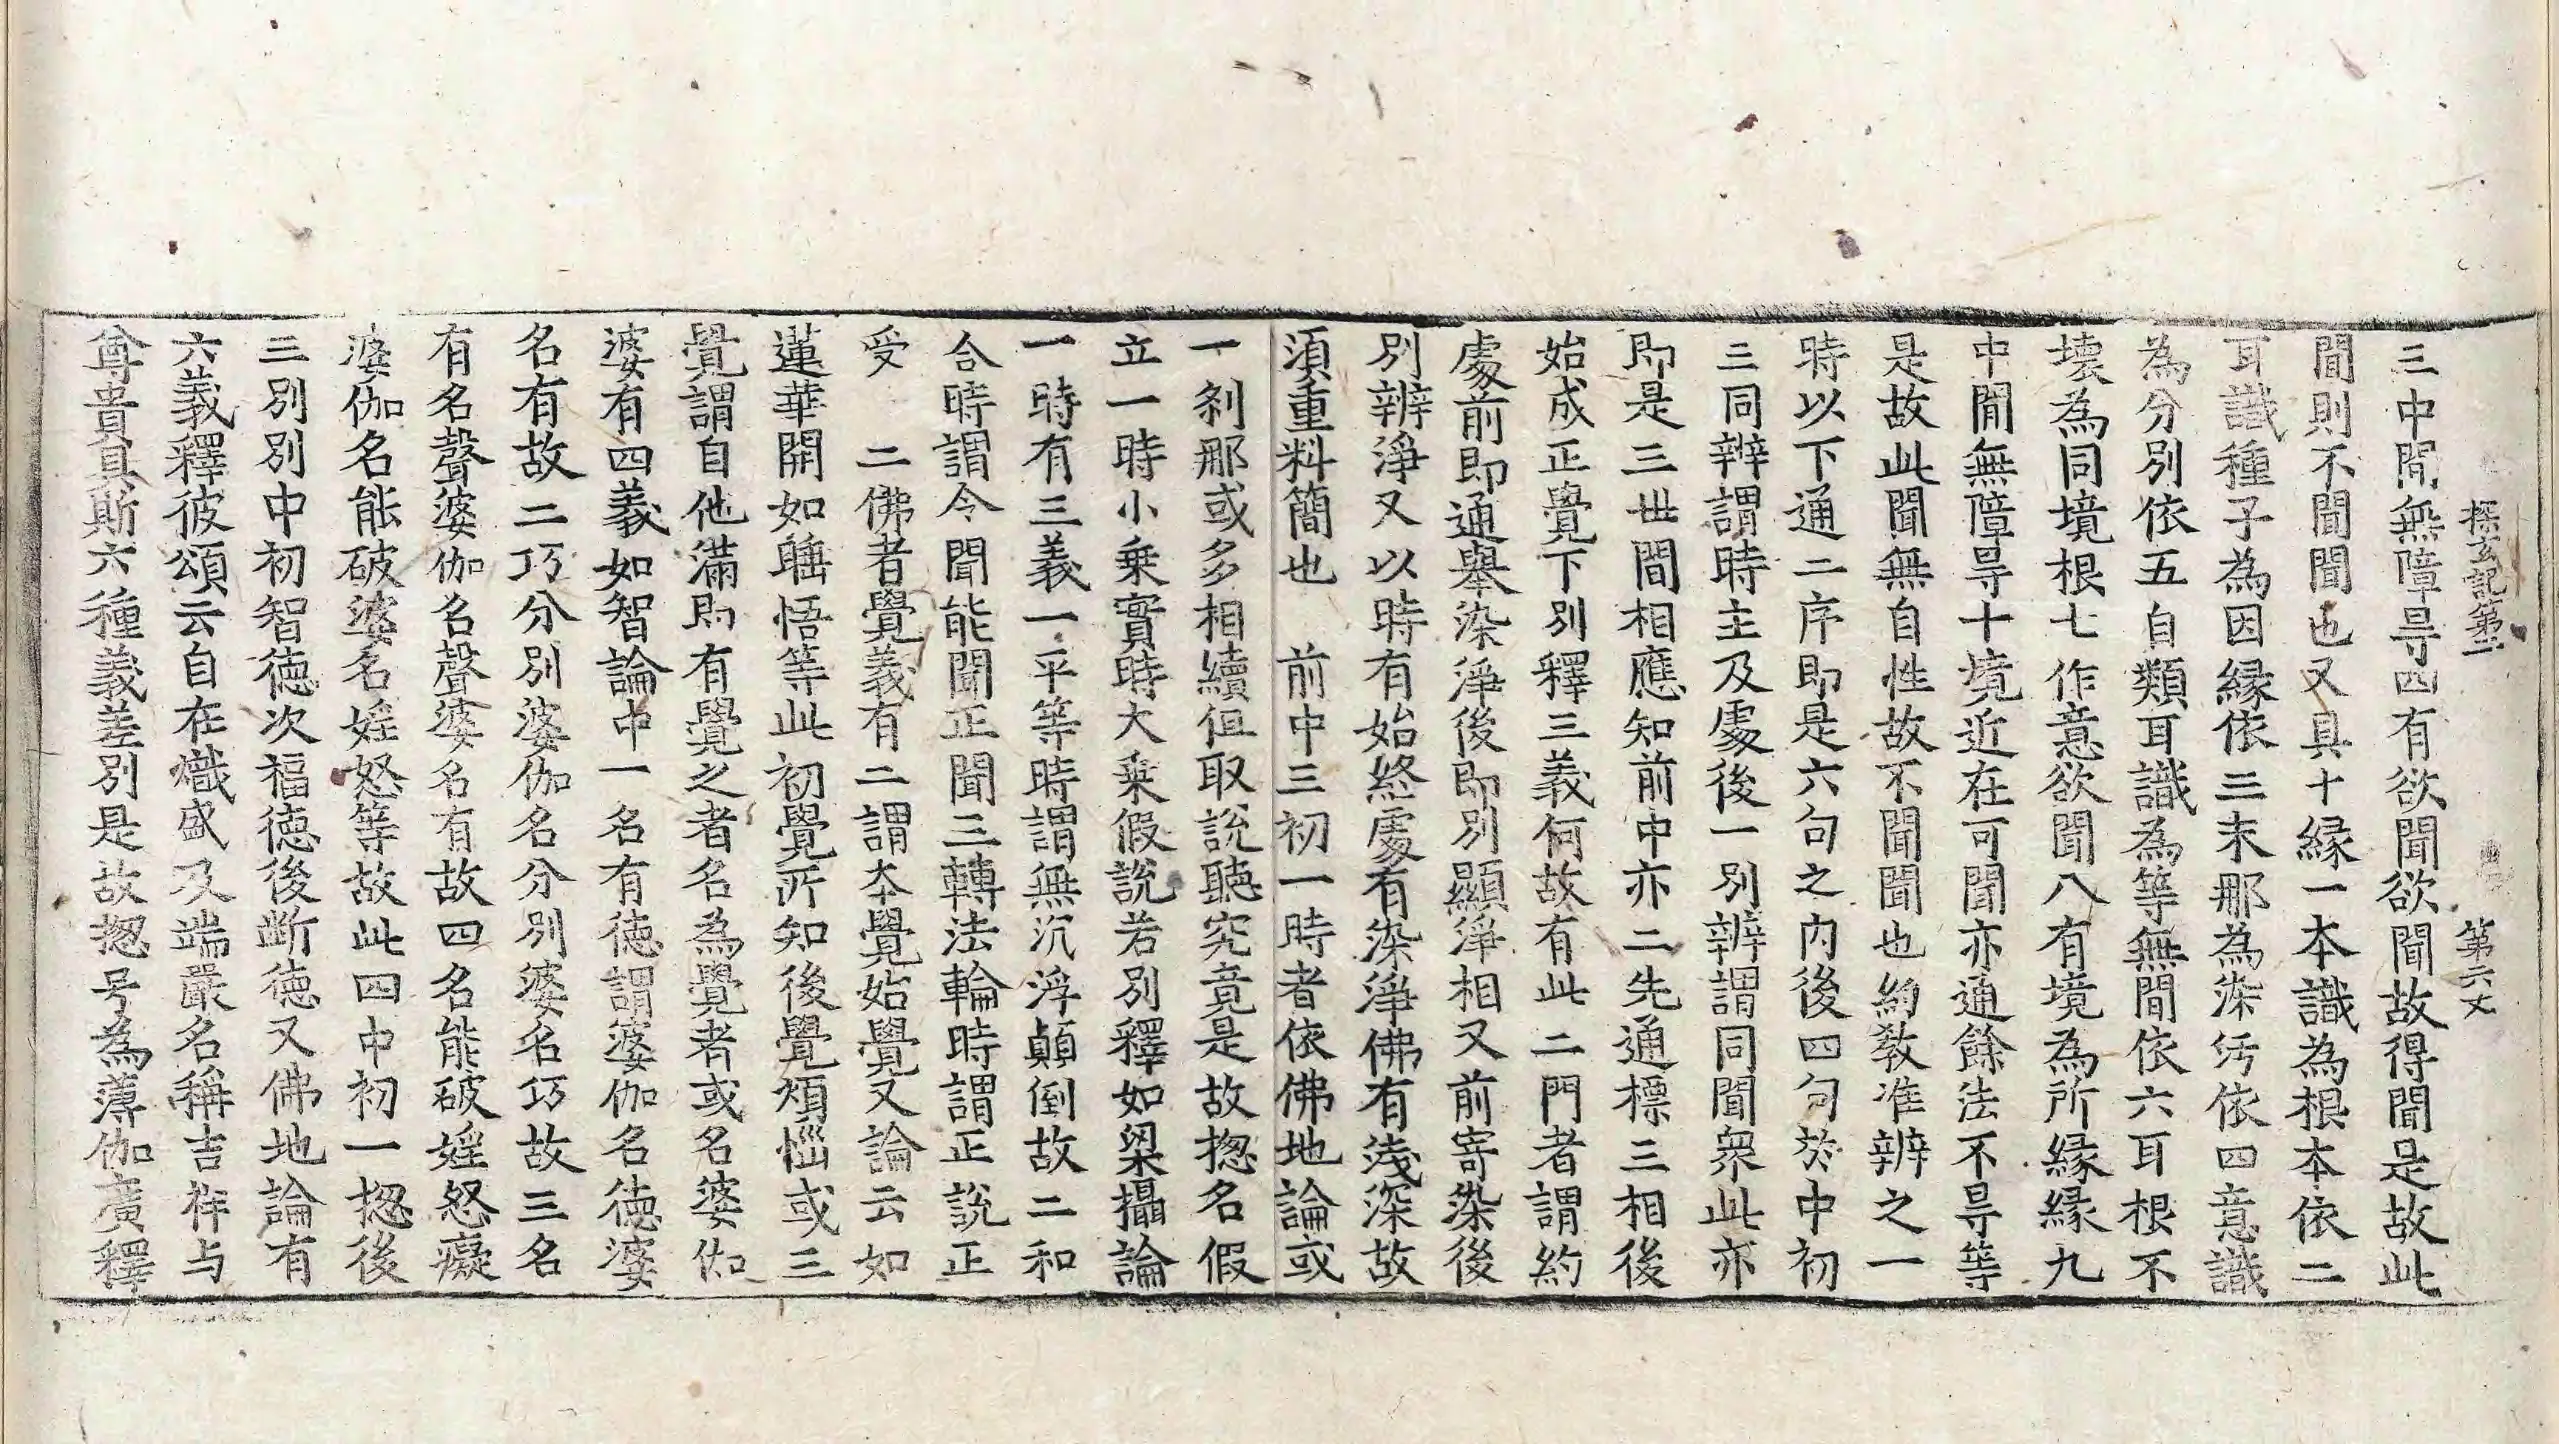 探玄記第二 第六丈
三中間無障㝵四有欲聞欲聞故得聞是故此
聞則不聞聞也又具十縁一本識為根本依二
耳識種子為因縁依三末那為染汚依四意識
為分別依五自類耳識為等無間依六耳根不
壊為同境根七作意欲聞八有境為所縁縁九
中間無障㝵十境近在可聞亦通餘法不㝵等
是故此聞無自性故不聞聞也約教准辨之一
時以下通二序即是六句之内後四句於中初
三同辨謂時主及處後一別辨謂同聞衆此亦
即是三世間相應知前中亦二先通標三相後
始成正覺下別釋三義何故有此 二門者謂約
處前即通舉染淨後即別顯淨相又前寄染後
別辨淨又以時有始終處有染淨佛有浅深故
須重料簡也 前中三初一時者依佛地論或
一刹那或多相續但取説聽究竟是故揔名假
立一時小乗實時大乗假説若別釋如梁攝論
一時有三義一平等時謂無沉浮顛倒故二和
合時謂令聞能聞正聞三轉法輪時謂正説正
受 二佛者覺義有二謂本覺始覺又論云如
蓮華開如睡悟等此初覺所知後覺煩惱或三
覺謂自他滿即有覺之者名為覺者或名婆伽
婆有四義如智論中一名有徳謂婆伽名徳婆
名有故二巧分別婆伽名分別婆名巧故三名
有名聲婆伽名聲婆名有故四名能破婬怒癡
婆伽名能破婆名婬怒等故此四中初一揔後
三別別中初智徳次福徳後断徳又佛地論有
六義釋彼頌云自在熾盛及端嚴名稱吉祥与
尊貴具斯六種義差別是故揔号為薄伽廣釋